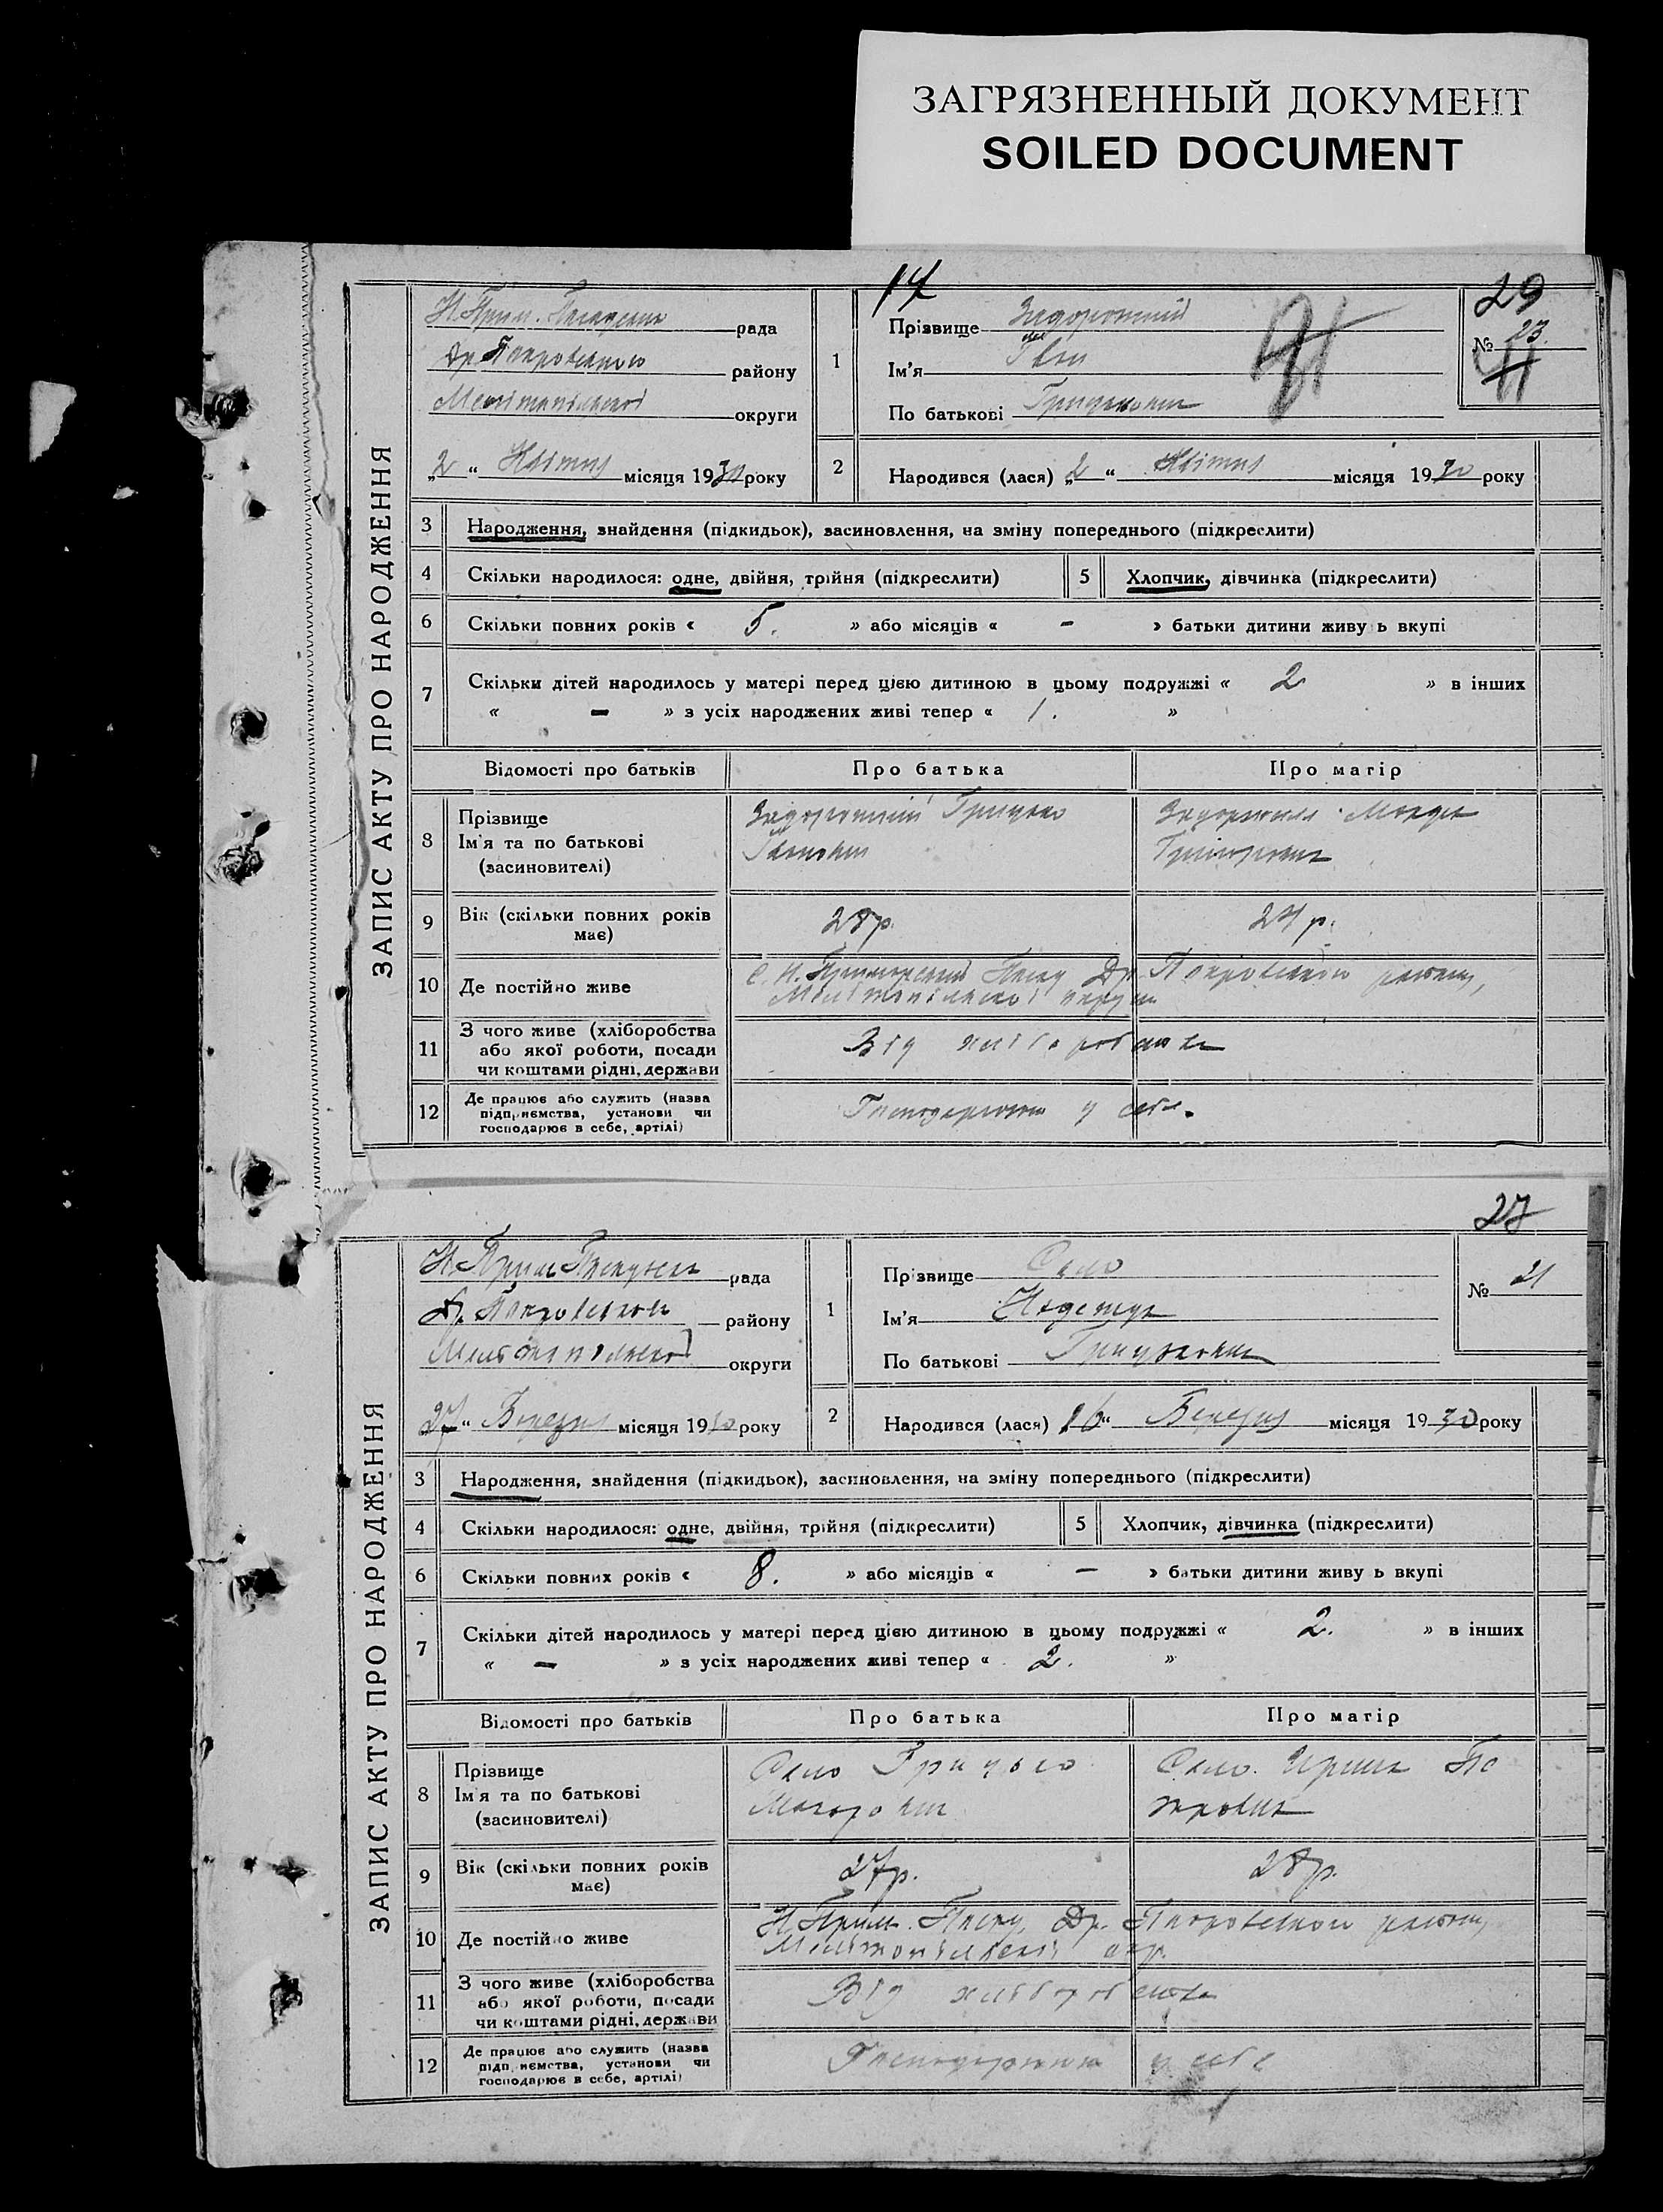 ЗАГРЯЗНЕННЫЙ ДОКУМЕНТ
SOILED DOCUMENT
ЗАПИС АКТУ ПРО НАРОДЖЕННЯ
14
29
Н. Прим. рада
Др. Покровського району
Мелітопільської округи
№ 23
41
1
Прізвище Задорожній
Ім'я Іван
По батькові Грицькович
„2“ Квітня місяця 1930 року
2 Народився (лася) „2“ Квітня місяця 1930 року
3 Народження, знайдення (підкидьок), васиновлення, на зміну попереднього (підкреслити)
4 Скільки народилося: одне, двійня, трійня (підкреслити) 5 Хлопчик, дівчинка (підкреслити)
6 Скільки повних років « 5. » або місяців « - » батьки дитини живу ь вкупі
7 Скільки дітей народилось у матері перед цією дитиною в цьому подружжі « 2 » в інших
« - » з усіх народжених живі тепер « 1. »
Відомості про батьків Про батька Про матір
8 Прізвище
Ім'я та по батькові
(васиновителі)
Задорожній Грицько
Іванович
Задорожня
Григоровна
9 Вік (скільки повних років має) 28 р. 24 р.
10 Де постійно живе
С. Н. Приморський Посад Др. Покровського району,
Мелітопільської округи
11 З чого живе (хліборобства
або якої роботи, посади
чи коштами рідні, держави
Від хліборобства
12 Де працює або служить (назва
підприємства, установи чи
господарює в себе, артілі)
Господарюють у себе.
27
ЗАПИС АКТУ ПРО НАРОДЖЕННЯ
Н. Прим. рада
Др. Покровського району
Мелітопільської округи
№ 21
1
Прізвище Сало
Ім'я Надежда
По батькові
27“ Березня місяця 1930 року
2 Народився (лася) 16“ Березня місяця 1930 року
3 Народження, знайдення (підкидьок), васиновлення, на зміну попереднього (підкреслити)
4 Скільки народилося: одне, двійня, трійня (підкреслити) 5 Хлопчик, дівчинка (підкреслити)
6 Скільки повних років « 8. » або місяців « - » батьки дитини живу ь вкупі
7 Скільки дітей народилось у матері перед цією дитиною в цьому подружжі « 2. » в інших
« - » з усіх народжених живі тепер « 2. »
Відомості про батьків Про батька Про матір
8 Прізвище
Ім'я та по батькові
(васиновителі)
Сало Грицько
Сало Ирина Пе
тровна
9 Вік (скільки повних років має) 27 р. 28 р.
10 Де постійно живе
Н. Прим. Посад, Др. Покровського району
Мелітопільської окр.
11 З чого живе (хліборобства
або якої роботи, посади
чи коштами рідні, держави
Від хліборобства
12 Де працює або служить (назва
підприємства, установи чи
господарює в себе, артілі)
Господарюють у себе